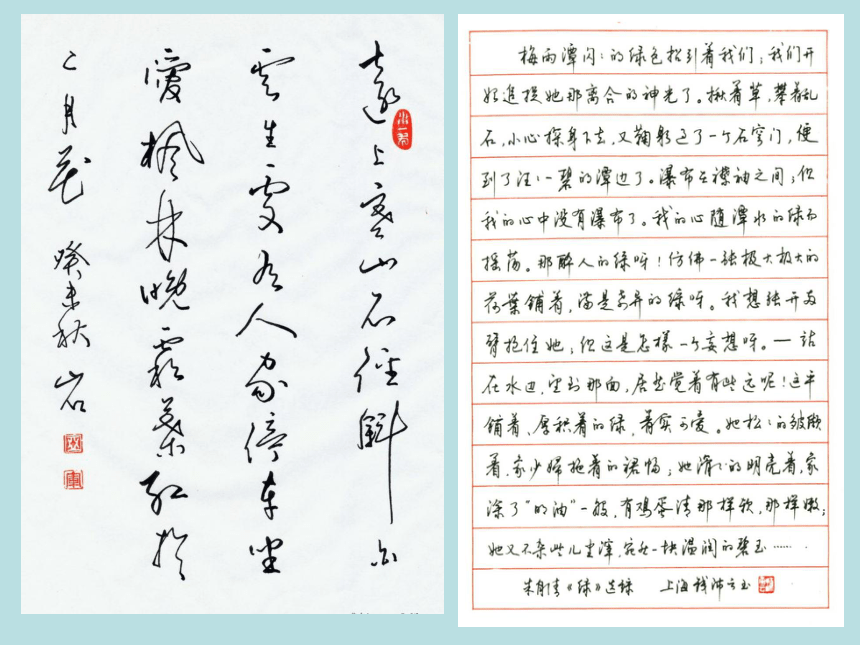 遠上寒山石徑斜白
雲生處有人家停車坐
愛楓林晚霜葉紅於
二月花 癸未秋 岩
梅雨潭闪闪的绿色招引着我们;我们开
始追捉她那离合的神光了。揪着草,攀着乱
石,小心探身下去,又鞠躬过了一个石穹门,便
到了汪汪一碧的潭边了。瀑布在襟袖之间;但
我的心中没有瀑布了。我的心随潭水的绿而
摇荡。那醉人的绿呀!仿佛一张极大极大的
荷葉铺着,满是奇异的绿呀。我想张开两
臂抱住她;但这是怎样一个妄想呀。—站
在水边,望到那面,居然觉着有些远呢!这平
铺着、厚积着的绿,着实可爱。她松松的皱缬
着,象少婦拖着的裙幅;她滑滑的明亮着,象
涂了“明油”一般,有鸡蛋清那样软,那样嫩;
她又不杂些儿尘滓,宛然一块温润的碧玉……
朱自清《绿》选录 上海钱沛云书